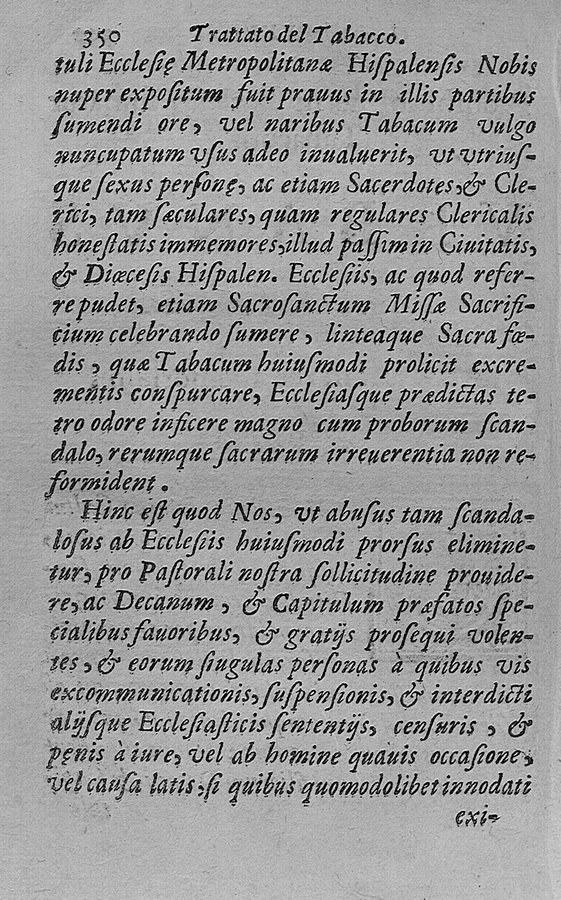 350 Trattato del Tabacco.
tuli Ecclesię Metropolitanæ Hiſpalenſis Nobis
nuper expoſitum fuit prauus in illis partibus
ſumendi ore, vel naribus Tabacum vulgo
nuncupatum vſus adeo inualuerit, vt vtriuſ-
que ſexus perſonę, ac etiam Sacerdotes, & Cle-
rici, tam ſæculares, quam regulares Clericalis
honeſtatis immemores, illud paſſim in Ciuitatis,
& Diœceſis Hiſpalen. Eccleſiis, ac quod refer-
re pudet, etiam Sacroſanctum Miſſæ Sacrifi-
cium celebrando ſumere, linteaque Sacra fœ-
dis, quæ Tabacum huiuſmodi prolicit excre-
mentis conſpurcare, Eccleſiaſque prædictas te-
tro odore inficere magno cum proborum ſcan-
dalo, rerumque ſacrarum irreuerentia non re-
formident.
Hinc eſt quod Nos, vt abuſus tam ſcanda-
loſus ab Eccleſiis huiuſmodi prorſus elimine-
tur, pro Paſtorali noſtra ſollicitudine prouide-
re, ac Decanum, & Capitulum præfatos ſpe-
cialibus fauoribus, & gratijs proſequi volen-
tes, & eorum ſiugulas perſonas à quibus vis
excommunicationis, ſuſpenſionis, & interdicti
alijſque Eccleſiaſticis ſententijs, cenſuris, &
pęnis à iure, vel ab homine quauis occaſione,
vel cauſa latis, ſi quibus quomodolibet innodati
exi-